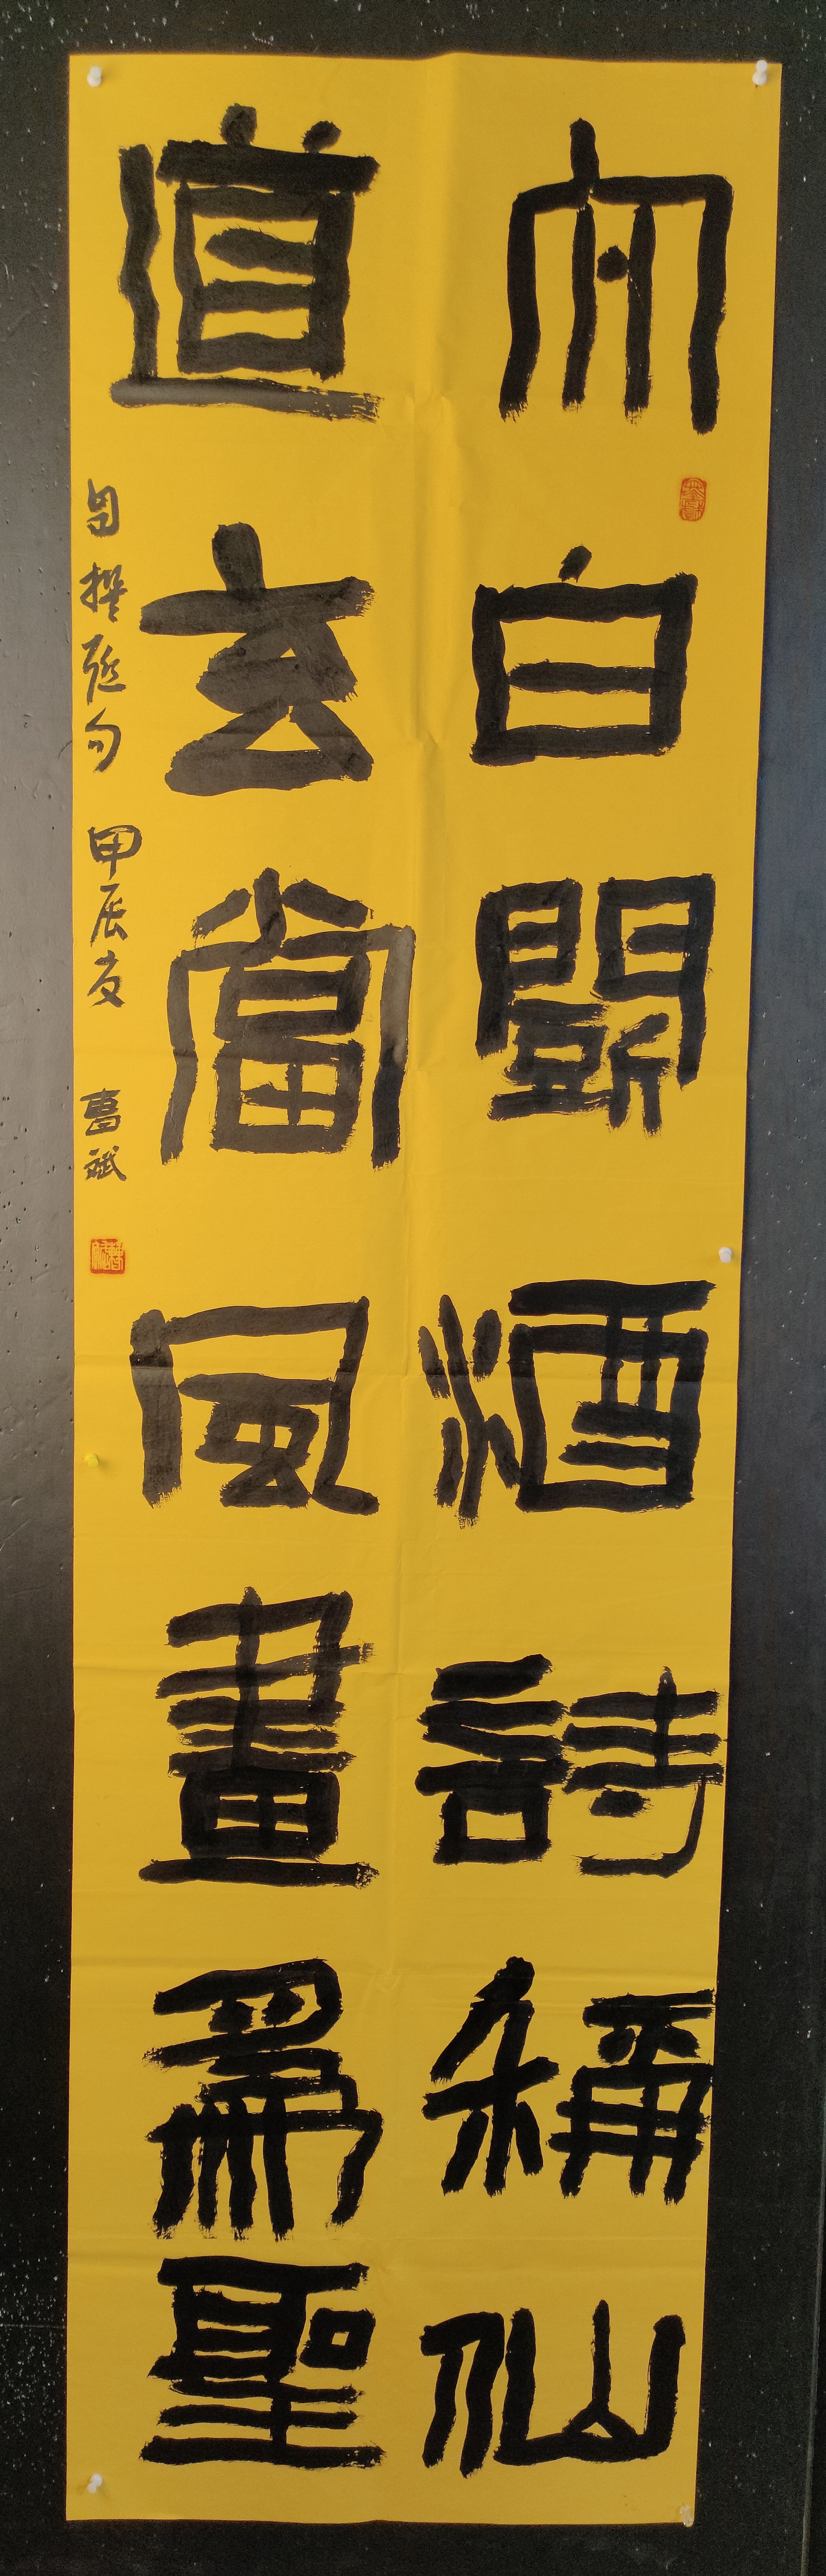 太白鬭酒詩稱仙
道玄當風畫爲聖
自撰聯句 甲辰夏 葛斌